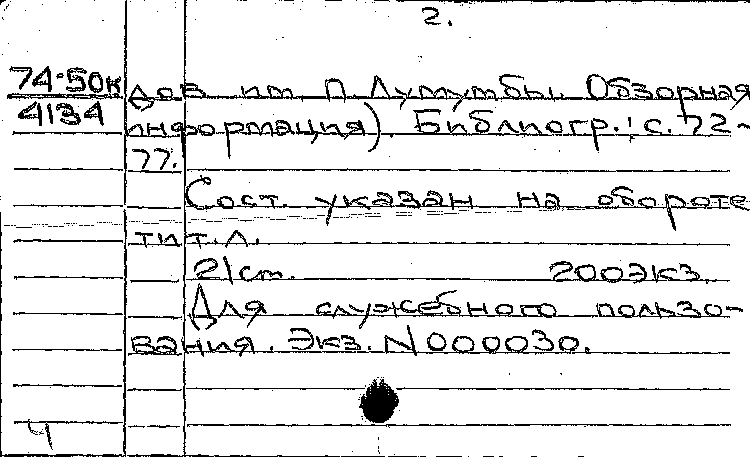 2.
74-50к дов им. П. Лумумбы. Обзорная
4134 информация). Библиогр.: с. 72-
77.
Сост. указан на обороте
тит. л.
21 ст. 200 экз.
Для служебного пользо-
вания. Экз. N 000030.
4